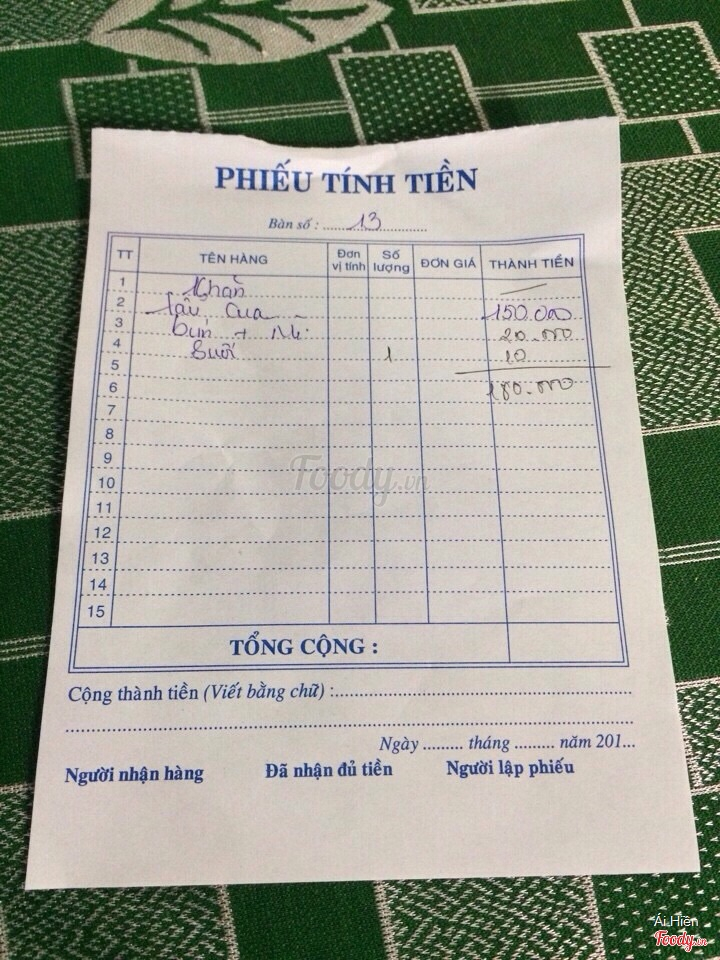 PHIẾU TÍNH TIỀN
Bàn số : 13
TT TÊN HÀNG Đơn vị tính Số lượng ĐƠN GIÁ THÀNH TIỀN
1 Khăn —
2 Lẩu Cua 150.000
3 bún + 20.000
4 Suối 1 10
5
6 180.000
7
8
9
10
11
12
13
14
15
Foody.vn
TỔNG CỘNG :
Cộng thành tiền (Viết bằng chữ) :
Ngày ......... tháng ......... năm 201...
Người nhận hàng Đã nhận đủ tiền Người lập phiếu
Ái Hiền
Foody.vn